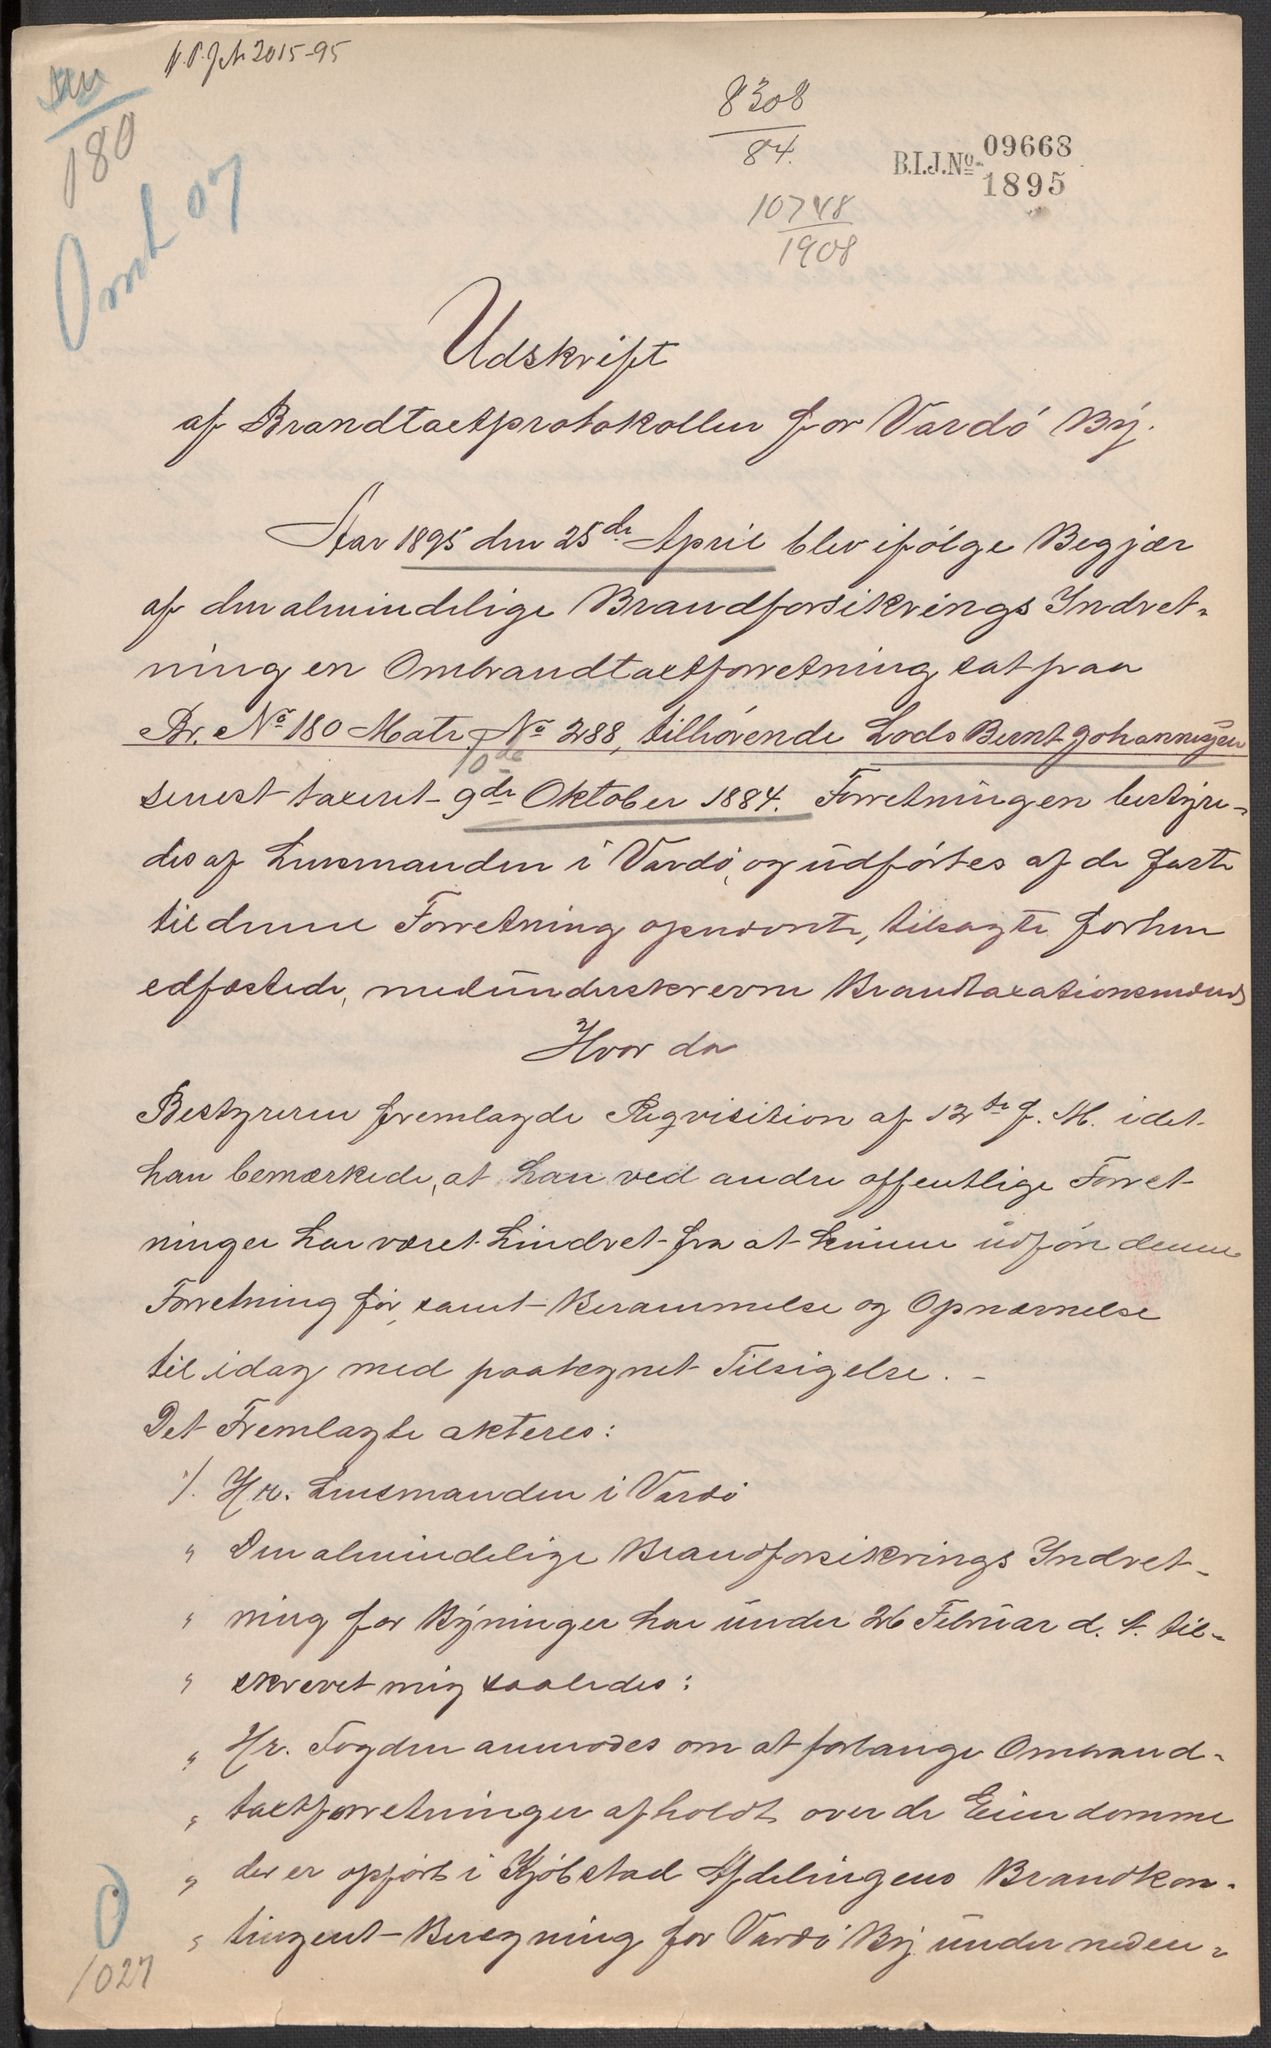 N.P. Jct. 2015-95
180
Omt 07
8308
84.
B.I.J.No 09668
1895
10748
1908
Udskrift
af Brandtaxtprotokollen for Vardö By.
Aar 1895 den 25de April blev ifölge Begjær
af den almindelige Brandforsikrings Indret-
ning en Ombrandtaxtforretning sat paa
Br. No 180 Matr No 288, tilhörende Lods Bernt Johannesen
10de
senest taxeret 9de Oktober 1884. Forretningen bestyre-
des af Lensmanden i Vardö, og udförtes af de faste
til denne Forretning opnævnte, tilsagte forhen
edfæstede, medunderskrevne Brandtaxationsmænd
Hvor da
Bestyreren fremlagde Reqvisition af 12te f. M. idet
han bemærkede, at han ved andre offentlige Forret-
ninger har været hindret fra at kunne udföre denne
Forretning för, samt Berammelse og Opnævnelse
til idag med paategnet Tilsigelse. -
Det Fremlagte akteres:
1/. Hr. Lensmanden i Vardö
" Den almindelige Brandforsikrings Indret-
" ning for Bygninger har under 26 Februar d. A. til-
" skrevet mig saaledes:
" Hr. Fogden anmodes om at forlange Ombrand-
" taxtforretninger afholdt over de Eiendomme
" der er opfört i Kjöbstad Afdelingens Brandkon-
" tingent-Beregning for Vardö By under neden-
1027